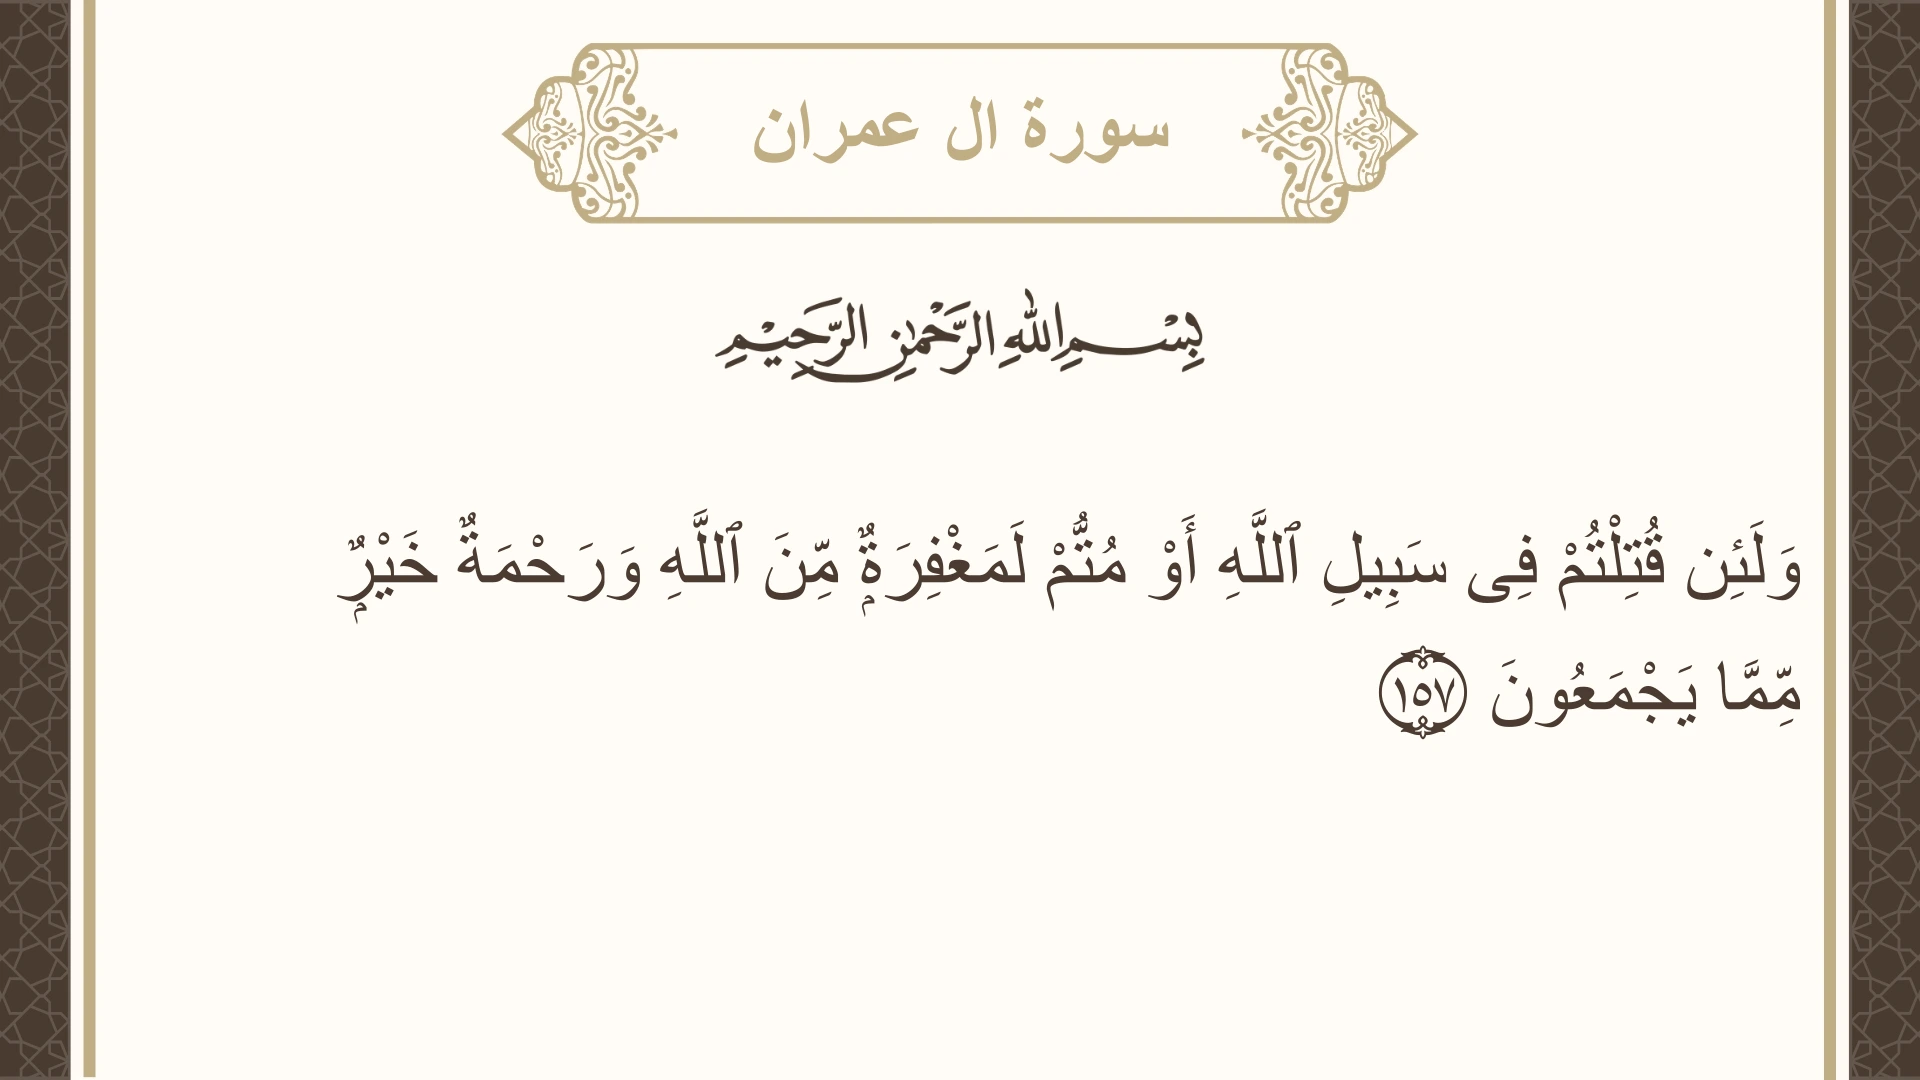 سورة ال عمران
بِسْمِ اللهِ الرَّحْمٰنِ الرَّحِيْمِ
وَلَئِن قُتِلْتُمْ فِى سَبِيلِ ٱللَّهِ أَوْ مُتُّمْ لَمَغْفِرَةٌۭ مِّنَ ٱللَّهِ وَرَحْمَةٌ خَيْرٌۭ
مِّمَّا يَجْمَعُونَ ١٥٧